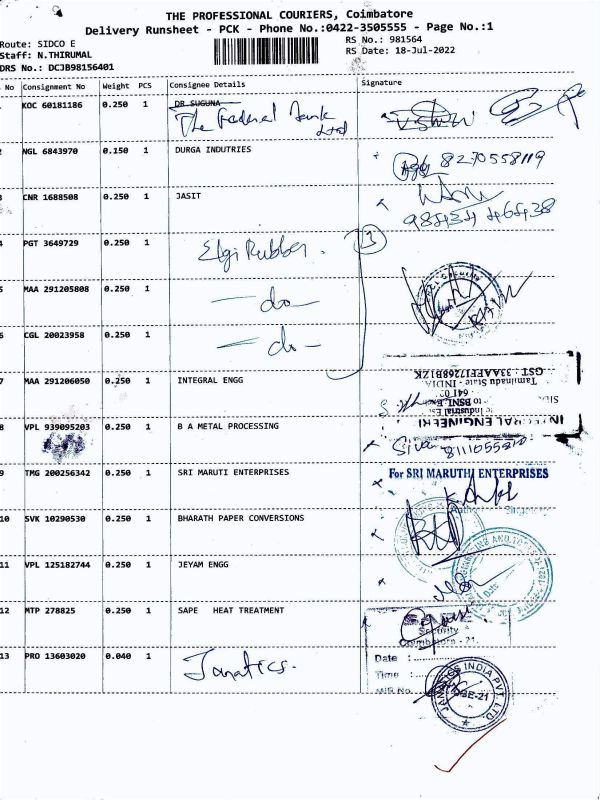 THE PROFESSIONAL COURIERS, Coimbatore
Delivery Runsheet - PCK - Phone No.:0422-3505555 - Page No.:1
Route: SIDCO E
RS No.: 981564
Staff: N.THIRUMAL
RS Date: 18-Jul-2022
DRS No.: DCJB98156401
No Consignment No Weight PCS Consignee Details Signature
KOC 60181186 0.250 1 DR SUGUNA
The Federal Bank
Ltd
2 NGL 6843970 0.150 1 DURGA INDUTRIES
8270558119
3 CNR 1688508 0.250 1 JASIT
4 PGT 3649729 0.250 1 Elgi Rubber. 3
5 MAA 291205808 0.250 1 -do-
6 CGL 20023958 0.250 1 -do-
7 MAA 291206050 0.250 1 INTEGRAL ENGG
GST: 33AAFFI7268B1ZK
Tamilnadu State - INDIA
INTEGRAL ENGINEERI
8 VPL 939095203 0.250 1 B A METAL PROCESSING
Siva
9 TMG 200256342 0.250 1 SRI MARUTI ENTERPRISES
For SRI MARUTHI ENTERPRISES
10 SVK 10290530 0.250 1 BHARATH PAPER CONVERSIONS
11 VPL 125182744 0.250 1 JEYAM ENGG
12 MTP 278825 0.250 1 SAPE HEAT TREATMENT
Security
Coimbatore - 21.
13 PRO 13603020 0.040 1 Janatics.
Date :
Time :
MIR No.
JANATICS INDIA PVT. LTD
CBE-21